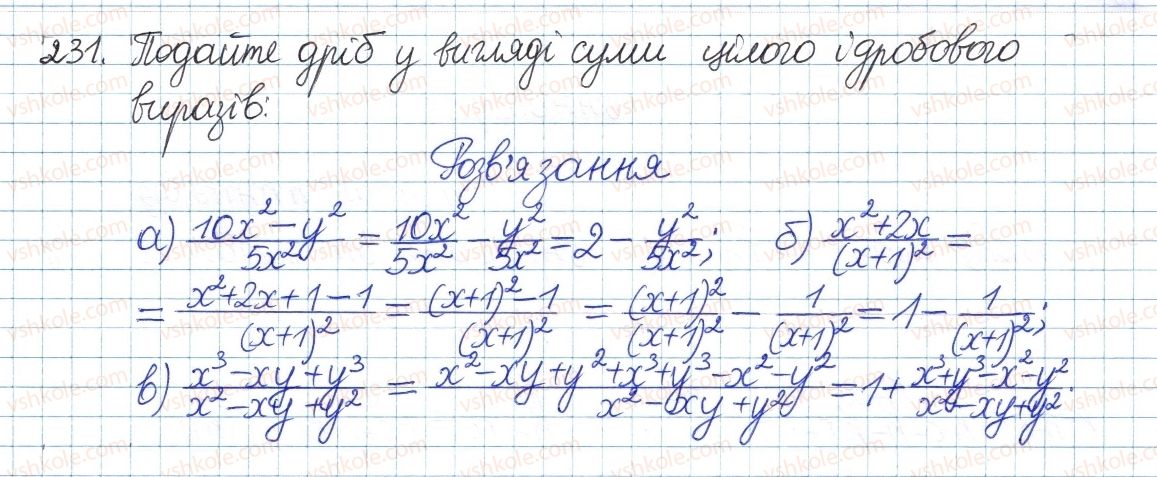 231. Подайте дріб у вигляді суми цілого і дробового
виразів:
Розв'язання
а) (10x² - y²)/(5x²) = 10x²/5x² - y²/5x² = 2 - y²/5x²; б) (x²+2x)/(x+1)² =
= (x²+2x+1-1)/(x+1)² = ((x+1)²-1)/(x+1)² = (x+1)²/(x+1)² - 1/(x+1)² = 1 - 1/(x+1)²;
в) (x³-xy+y³)/(x²-xy+y²) = (x²-xy+y²+x³+y³-x²-y²)/(x²-xy+y²) = 1 + (x³+y³-x²-y²)/(x²-xy+y²).